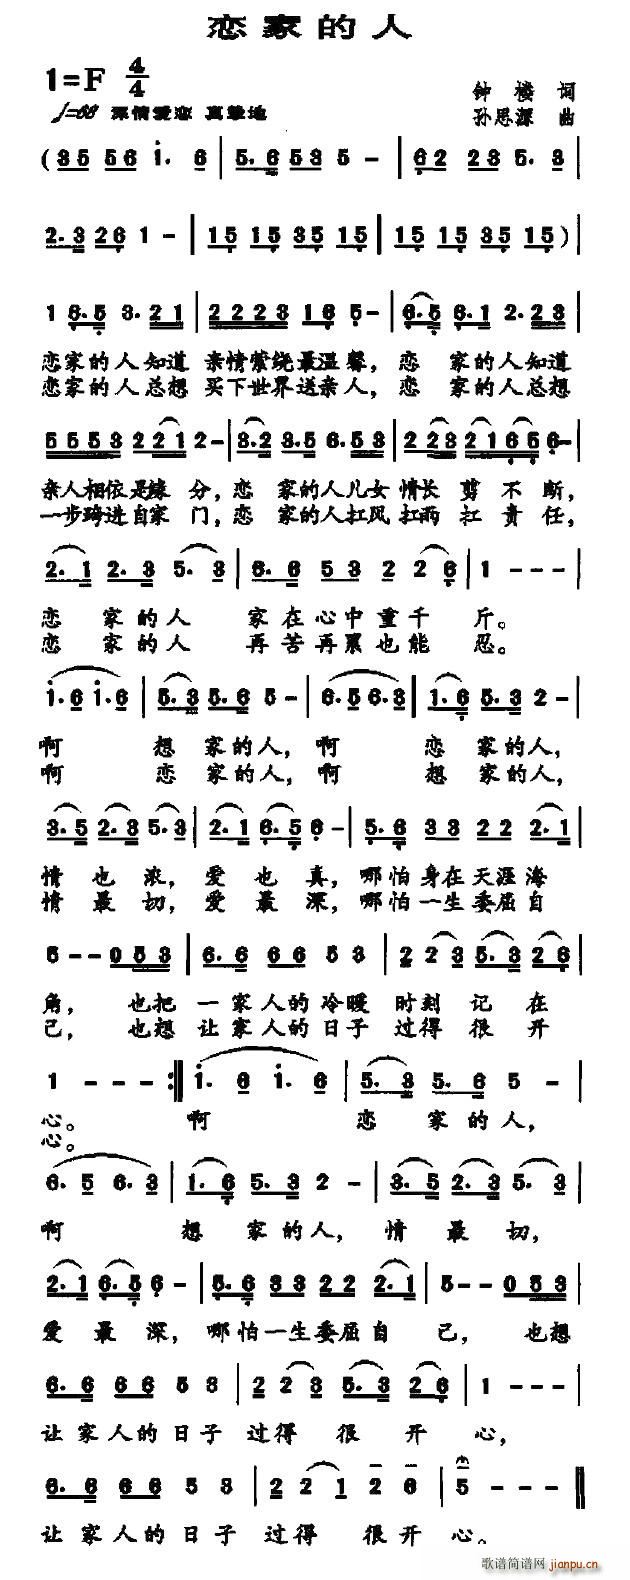 恋家的人
1=F 4/4
♩=68 深情爱恋 真挚地
钟楼 词
孙思源 曲
(35 56 i· 6 | 5·6 53 5 - | 62 23 5· 3 |
2·3 26 1 - | 15 15 35 15 | 15 15 35 15)
1 6·5 3· 21 | 2223 16 5 - | 6·5 6·1 2· 23
恋家的人知道 亲情萦绕最温馨，恋 家的人知道
恋家的人总想 买下世界送亲人，恋 家的人总想
5553 221 2 - | 3·2 3·5 6· 53 | 2 23 2165 6 -
亲人相依是缘 分，恋 家的人儿女 情长 剪 不 断，
一步跨进自家 门，恋 家的人扛风 扛雨 扛 责 任，
2· 1 2· 3 5· 3 | 6·6 53 2 26 | 1 - - -
恋 家的人 家在心中重千 斤。
恋 家的人 再苦再累也能 忍。
i·6 i·6 | 5·3 5·6 5 - | 6·5 6·3 | 1·6 5·3 2 -
啊 想家的人，啊 恋家的人，
啊 恋家的人，啊 想家的人，
3·5 2·3 5·3 | 2·1 6·5 6 - | 5·6 33 22 2·1
情也浓，爱也真，哪怕身在天涯海
情最切，爱最深，哪怕一生委屈自
5 - - 053 | 6·6 66 53 | 2 23 5·3 26
角， 也把 一家人的冷暖 时刻 记 在
己， 也想 让家人的日子 过得 很 开
1 - - - :‖ i· 6 i· 6 | 5·3 5·6 5 -
心。 啊 恋家的人，
心。
6·5 6·3 | 1·6 5·3 2 - | 3·5 2·3 5·3
啊 想家的人，情最切，
2·1 6·5 6 - | 5·6 33 22 2·1 | 5 - - 053
爱最深，哪怕一生委屈自 己， 也想
6·6 66 53 | 2 23 5·3 26 | 1 - - -
让家人的日子 过得 很 开 心，
6·6 66 53 | 2 21 2 6 | 5 - - -
让家人的日子 过得 很开 心。
歌谱简谱网
jianpu.cn